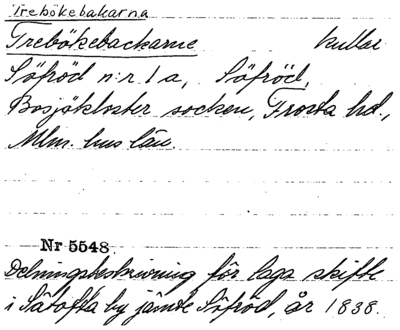 Trebökebakarna
Trebökebackarne kullar
Söfröd n:r 1 a, Söfröd,
Bosjökloster socken, Frosta hd.,
Mlm. hus län.
Nr 5548.
Delningsbeskrivning för laga skifte
i Sätofta by jämte Söfröd, år 1838.